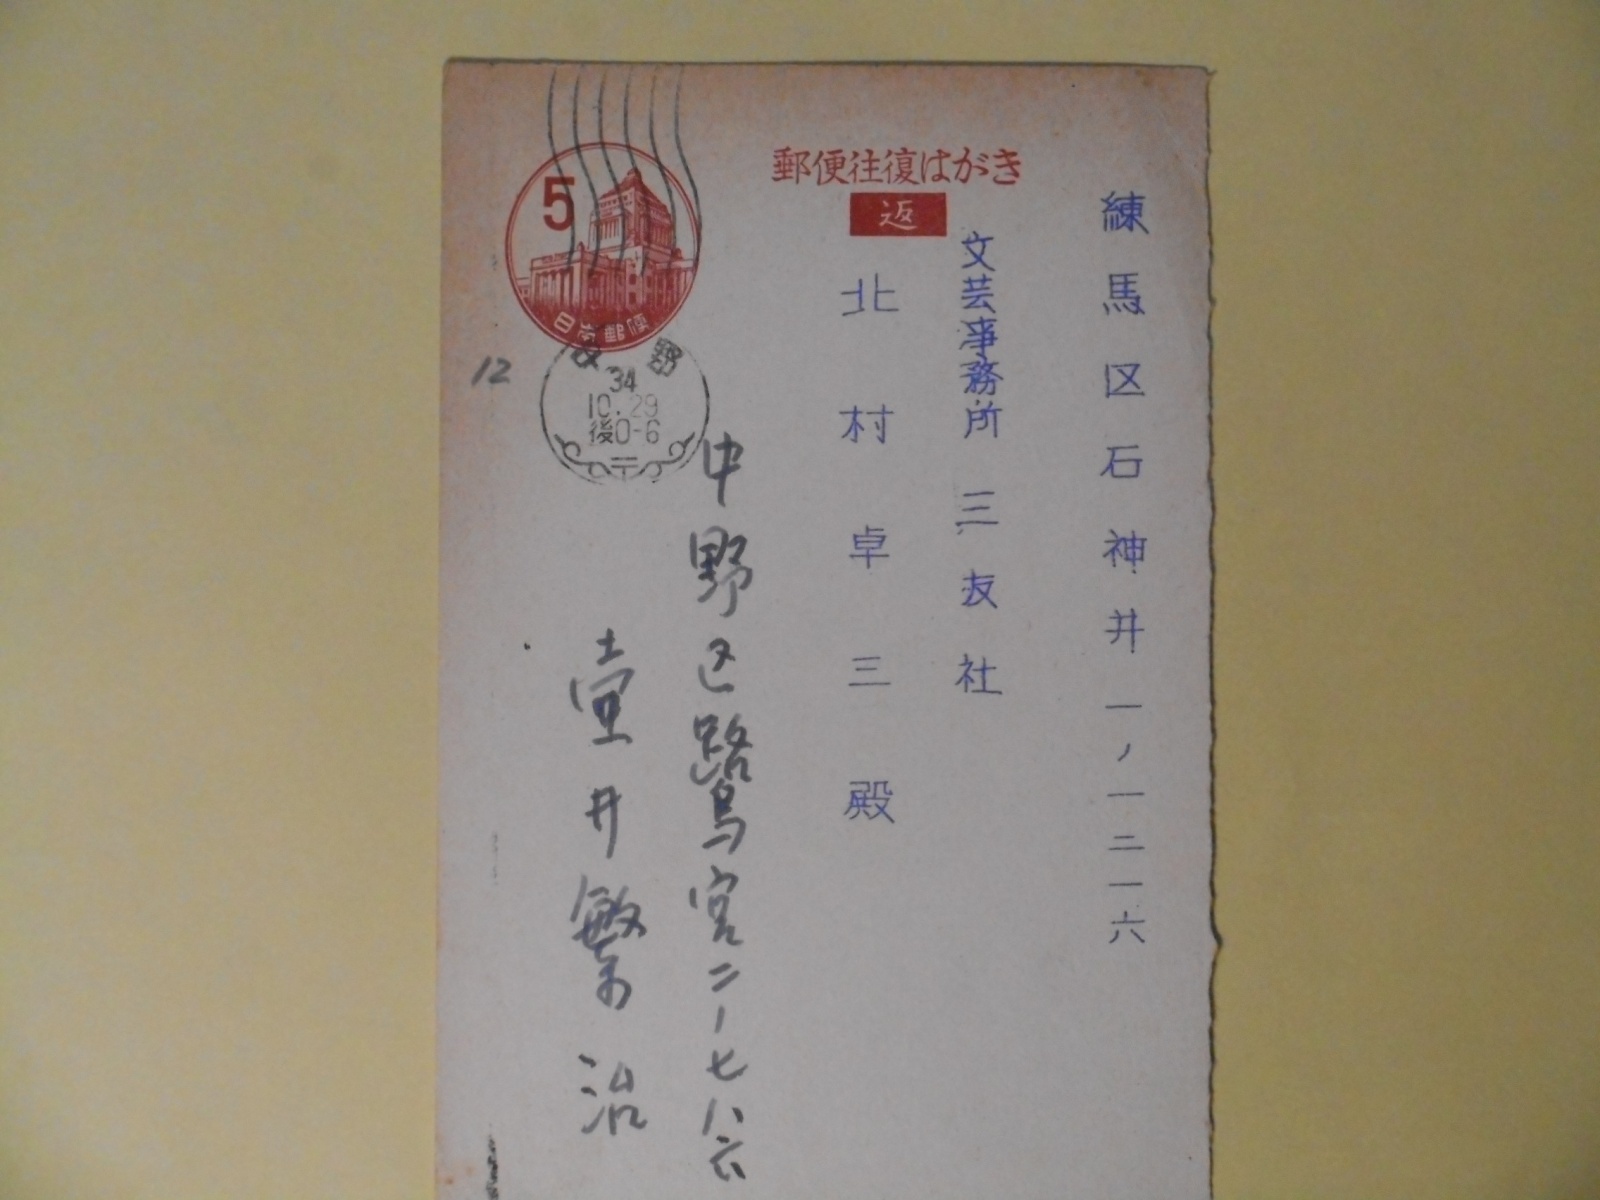 郵便往復はがき
返
練馬区石神井一ノ一二一六
文芸事務所 三友社
北村卓三殿
5
日本郵便
野
34
10.29
後0-6
12
中野区鷺宮二ノ七八六
壷井繁治